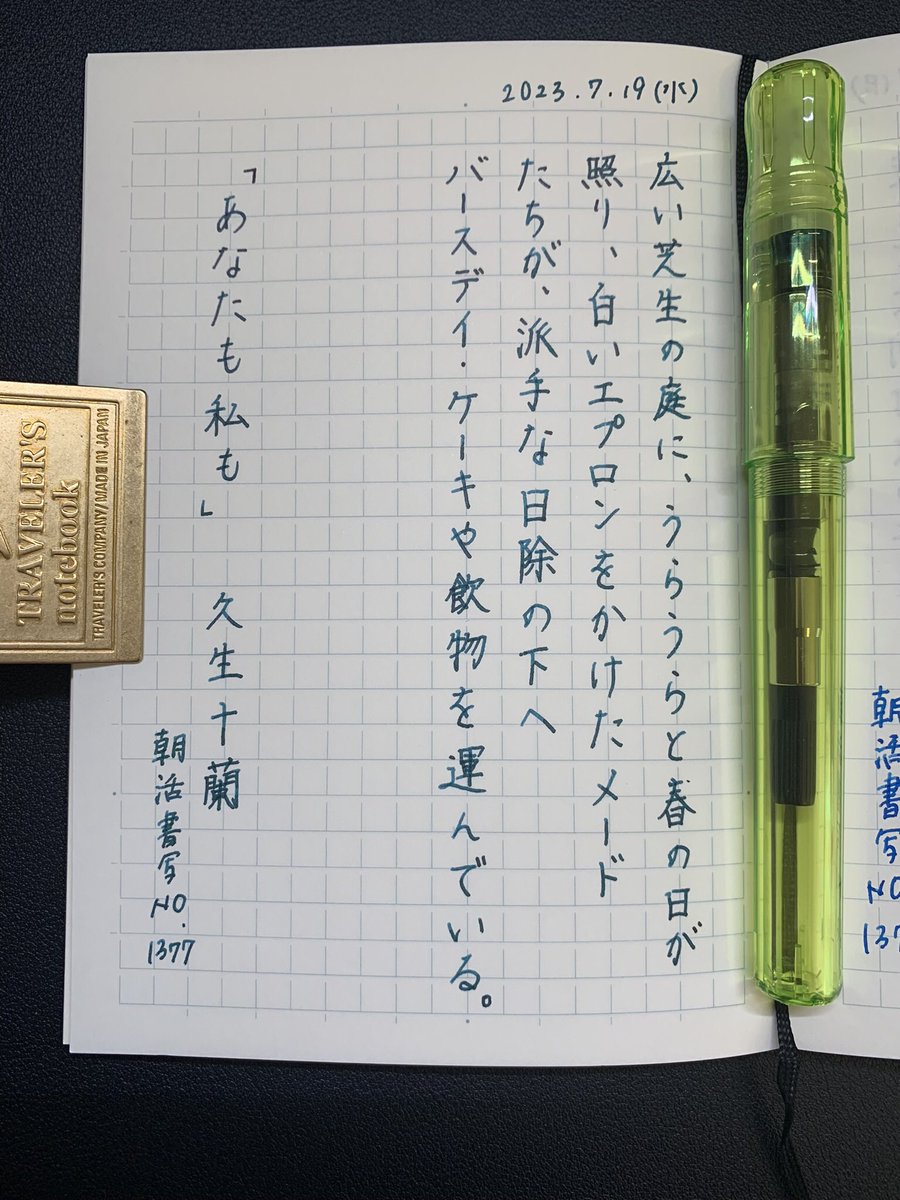 2023.7.19(水)
広い芝生の庭に、うらうらと春の日が
照り、白いエプロンをかけたメード
たちが、派手な日除の下へ
バースデイ・ケーキや飲物を運んでいる。
「あなたも私も」 久生十蘭
朝活書写NO.1377
TRAVELER'S
notebook
TRAVELER'S COMPANY/MADE IN JAPAN
朝活書写NO